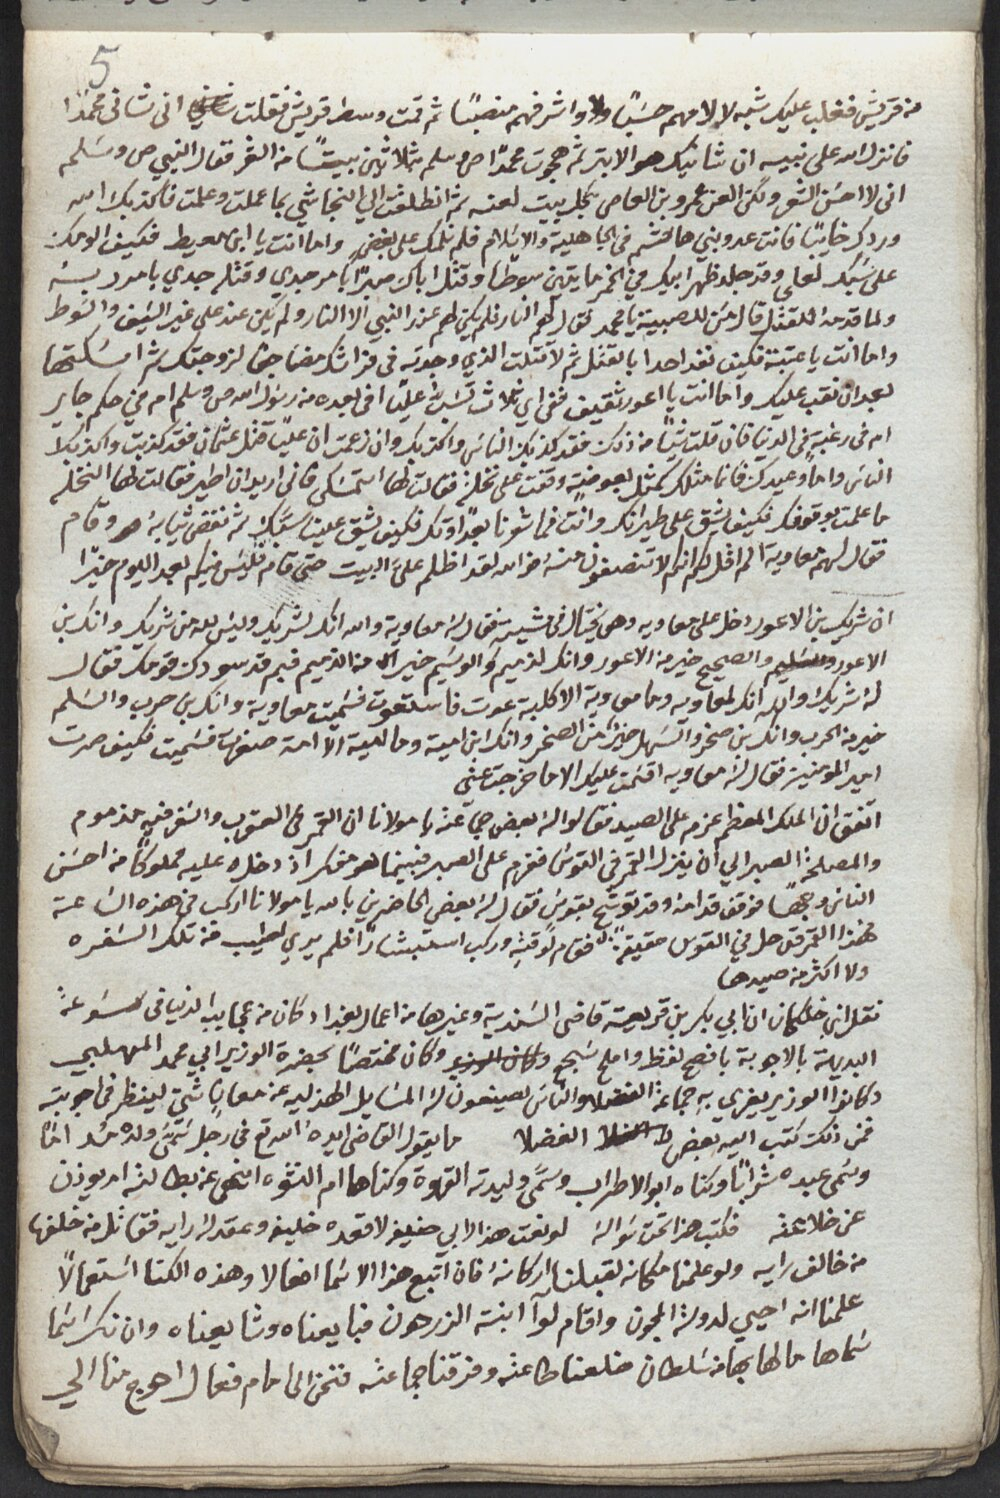 5
من قريش فغلب عليك شبه لا لامهم حسبًا ولا واشرفهم منصبًا ثم قمت وسط قريش فقلت اني شانئ محمدًا
فانزل الله على نبيه ان شانيك هو الابتر ثم هجوت محمدًا ص وسلم بثلاثين بيتًا من الشعر فقال النبي ص وسلم
اني لا احسن الشعر ولكن العن عمرو بن العاص بكل بيت لعنه ثم انطلقت الي النجاشي بما عملت وعلمت فاكذبك الله
وردك خايبًا فانت عدو بني هاشم في الجاهلية والاسلام فلم نلمك على بغض واما انت يا ابن معيط فكيف الومك
على سبك لعلي وقد جلد ظهر ابيك في الخمر مايتين سوطًا وقتل اباك صبرًا بامر جدي وقتله جدي بامر ربه
ولما قدمه للقتل قال من للصبية يا محمد فقال لهم النار فلم يكن لهم عند النبي الا النار ولم يكن عند علي غير السيف والسوط
واما انت يا عتبة فكيف تعد احدا بالقتل ثم لا قتلت الذي وجدته في فراشك مضاجعا لزوجتك ثم امسكتها
بعد ان بقب عليك واما انت يا اعور ثقيف ففي اي ثلاث تسب عليًا افي بعده من رسول الله ص وسلم ام في حكم جاير
ام في رغبة في الدنيا فان قلت شيًا من ذلك فقد كذبت الناس واكذبك وان زعمت ان عليًا قتل عثمان فقد كذبت واكذبك
الناس واما وعيدك فانما مثلك كمثل بعوضة وقفت على نخلة فقالت لها استمسكي فاني اريد ان اطير فقالت لها النخله
ما علمت بوقوفك فكيف يشق على طيرانك وانت فما شعرنا بعداوتك فكيف يشق علينا سبك ثم نفض ثيابه وقام
فقال لهم معاوية الم اقل لكم انكم لا تنتصفون منه فوالله لقد اظلم علي البيت حتى قام فليس فيكم بعد اليوم خيرًا
ان شريك بن الاعور دخل على معاويه وهي يختال في مشيته فقال له معاوية والله انك لشريك وليس لله من شريك وانك بن
الاعور والصحيح خير من الاعور وانك لدميم والوسيم خير من الدميم فبم قد سودك قومك فقال
له شريك والله انك لمعاويه وما معاوية الا كلبة عوت فاستعوت فسميت معاوية وانك بن حرب والسلم
خير من الحرب وانك بن صخر والسهل خيرً من الصخر وانك ابن امية وما امية الا امة صغرت فسميت فكيف صرت
امير المومنين فقال له معاويه اقسمت عليك الا ما خرجت عني
اتفق ان الملك المعظم عزم على الصيد فقالوا له بعض جماعته يا مولانا ان القمر في العقرب والسفر فيه مذموم
والمصلحة الصبر الي ان ينزل القمر في القوس فعزم على الصبر فبينما هو مفكر اذ دخل عليه مملوكًا من احسن
الناس وجهًا فوقف قدامه وقد توشح بقوس فقال له بعض الحاضرين بالله يا مولانا اركب في هذه الساعة
فهذا القمر قد حل في القوس حقيقة فقام لوقته وركب استبشارًا فلم يري اطيب من تلك السفره
ولا اكثر من صيدها
نقل ابن خلكان ان ابي بكر بن قريعة قاضي السندية وغيرها من اعمال بغداد كان من عجايب الدنيا في سرعة
البديهة بالاجوبة بافصح لفظ واملح سجع وكان مختصًا بحضرة الوزير ابي محمد المهلبي
وكانوا الوزير يغري به جماعة الفضلا والناس يصنعون له المسايل الهزليه عن معانٍ شتي لينظر في اجوبته
فمن ذلك كتب اليه بعض الفضلا ما يقول القاضي ايده الله تع في رجل سمى ولده مدامًا
وسمى عبده شرابًا وكناه ابو الاطراب وسمى وليدته القهوة وكناها ام النشوه اينهى عن بطالته ام يوذن
عن خلاعته فكتب هذا تحت سواله لو نعت هذا لابي حنيفه لاقعده خليفه وعقد له رايه فقاتل من خلفها
من خالف رايه ولو علمنا مكانه لقبلنا اركانه فان اتبع هذا الاسما افعالا وهذه الكنا استعمالًا
علمنا انه احيي لدولة المجون واقام لوآ ابنة الزرجون فبايعناه وشايعناه وان تك اسما
سماها مالها بها من سلطان خلعنا طاعته وفرقنا جماعته فنحن الى امام فعال احوج منا الي